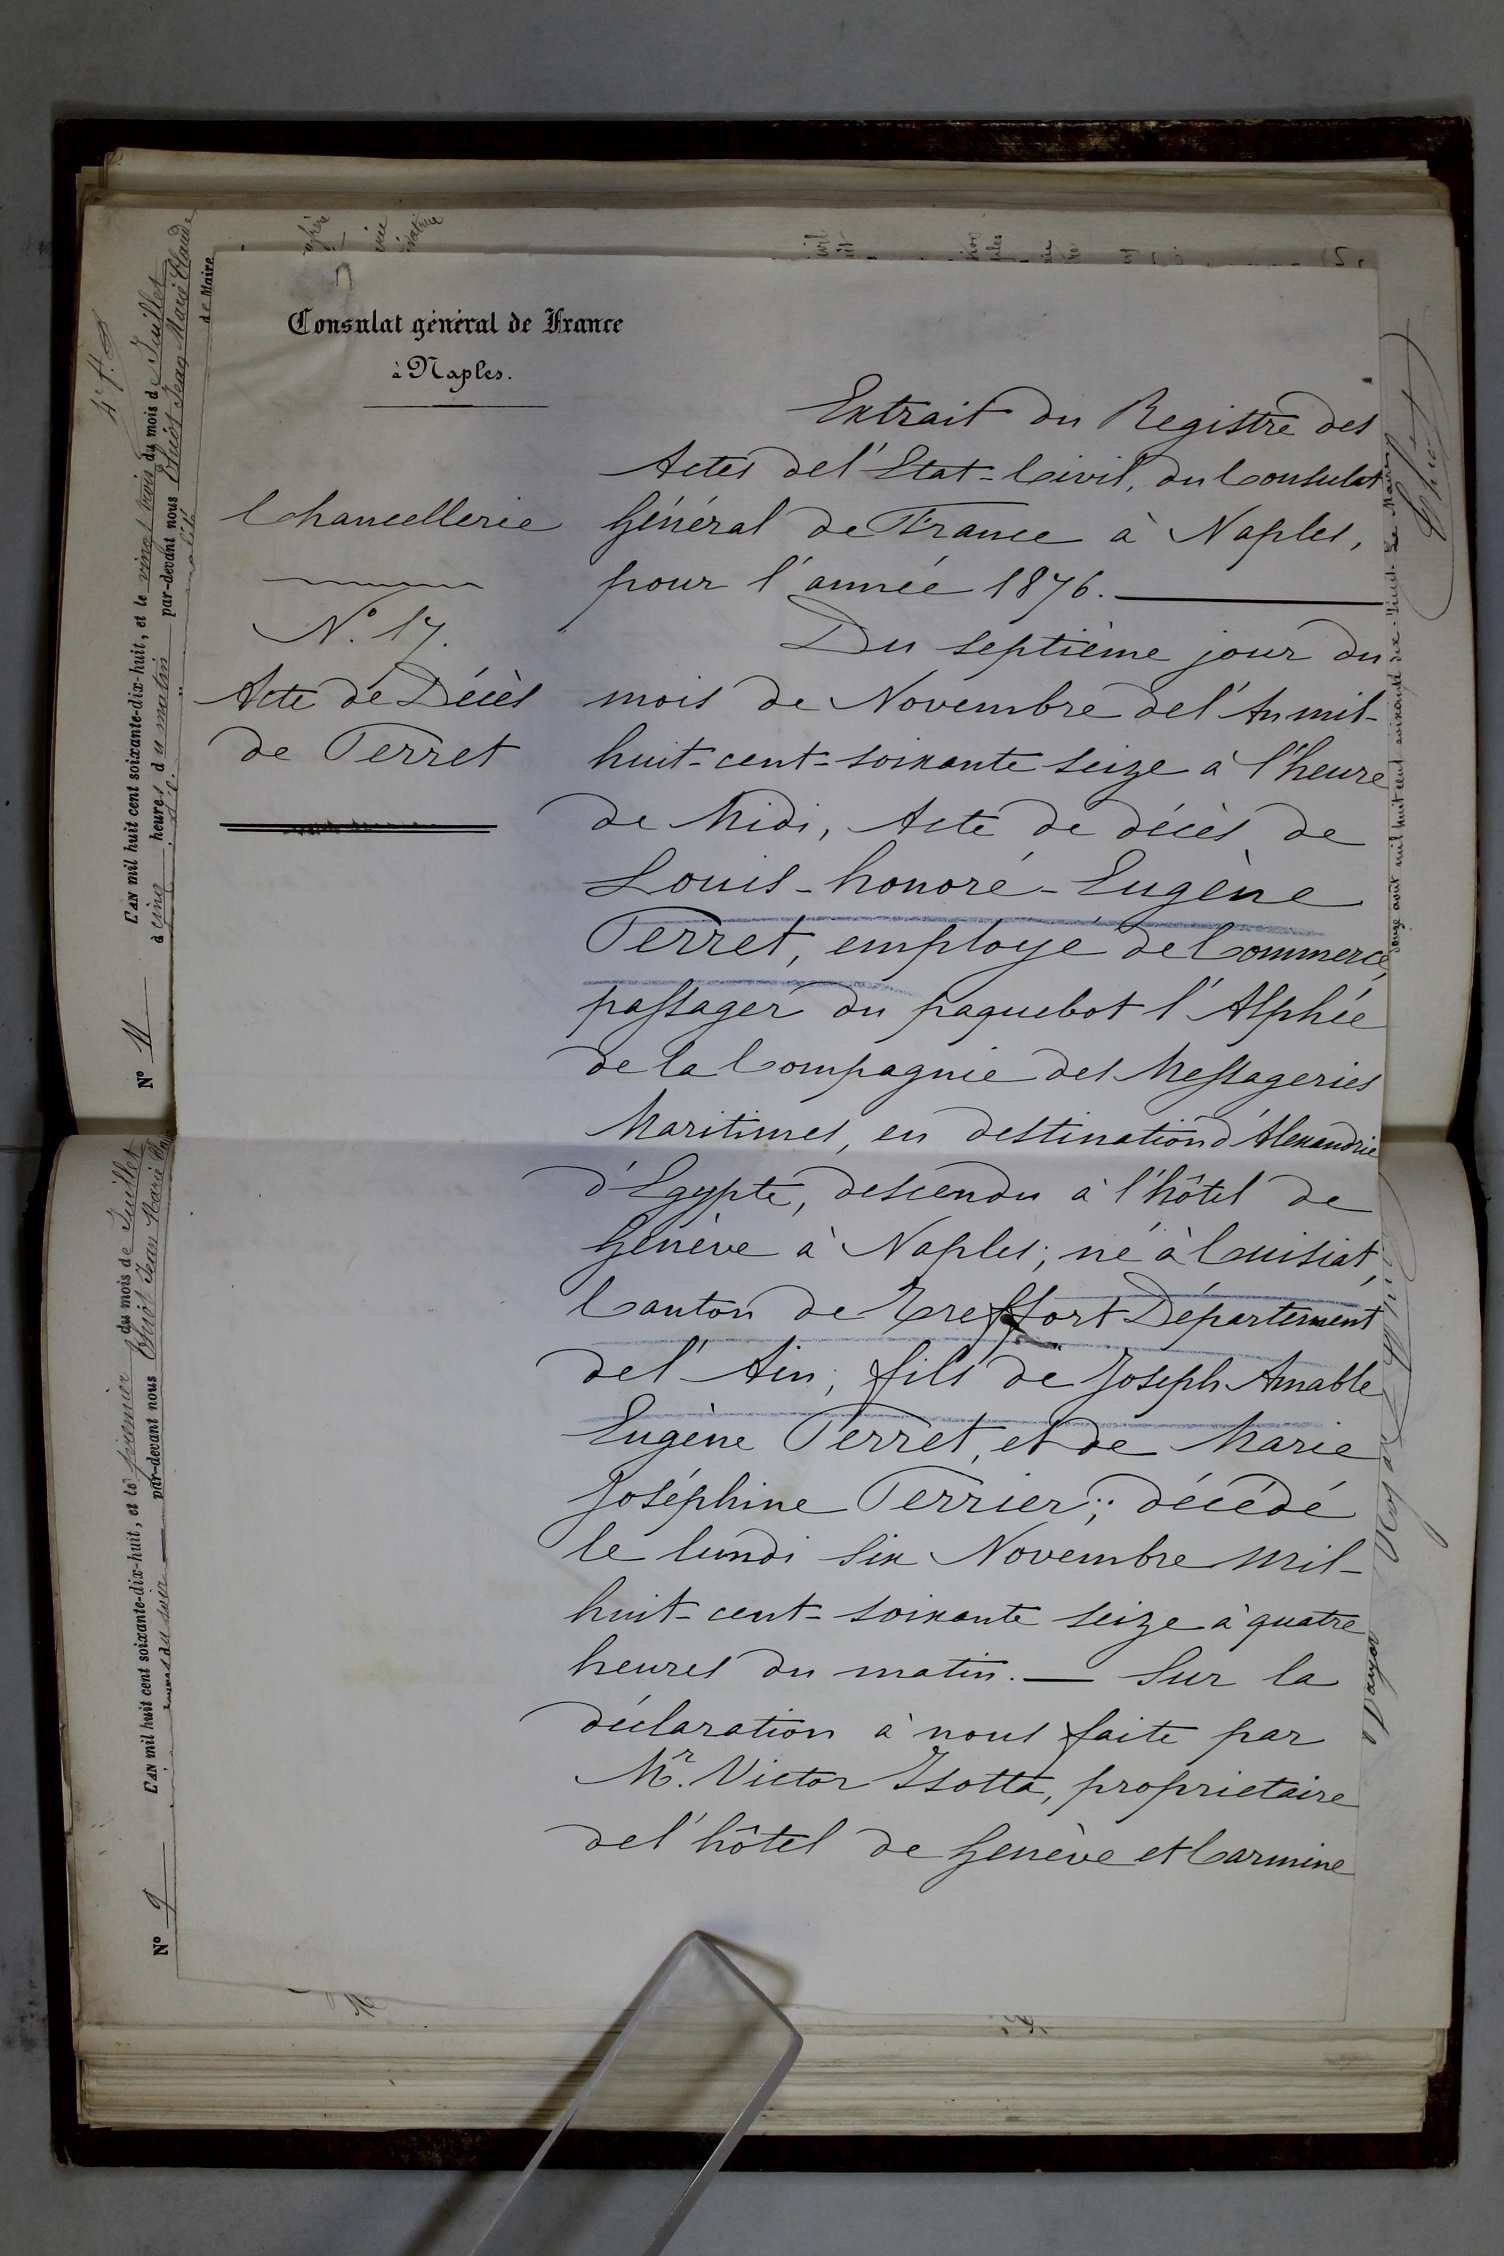 Consulat général de France
à Naples.
Chancellerie
N.° 17.
Acte de Décès
de Perret
Extrait du Registre des
Actes de l'Etat-Civil, du Consulat
Général de France à Naples,
pour l'année 1876.
Du septième jour du
mois de Novembre de l'An mil-
huit-cent-soixante seize à l'heure
de Midi, Acte de décès de
Louis-honoré-Eugène
Perret, employé de Commerce,
passager du paquebot l'Alphée
de la Compagnie des Messageries
Maritimes, en destination d'Alexandrie
d'Egypte, descendu à l'hôtel de
Genève à Naples; né à Cuisiat,
Canton de Treffort Département
de l'Ain; fils de Joseph Amable
Eugène Perret, et de Marie
Joséphine Perrier; décédé
le lundi six Novembre mil-
huit-cent-soixante seize à quatre
heures du matin. — Sur la
déclaration à nous faite par
Mr. Victor Isotta, proprietaire
de l'hôtel de Genève et Carmine
N° 11
L'AN mil huit cent soixante-dix-huit, et le vingt trois du mois de Juillet
à cinq heures du matin par-devant nous Chuit Jean Marie Claude
de Maire
N° 9
L'AN mil huit cent soixante-dix-huit, et le premier du mois de Juillet
du soir par-devant nous Chuit Jean Marie